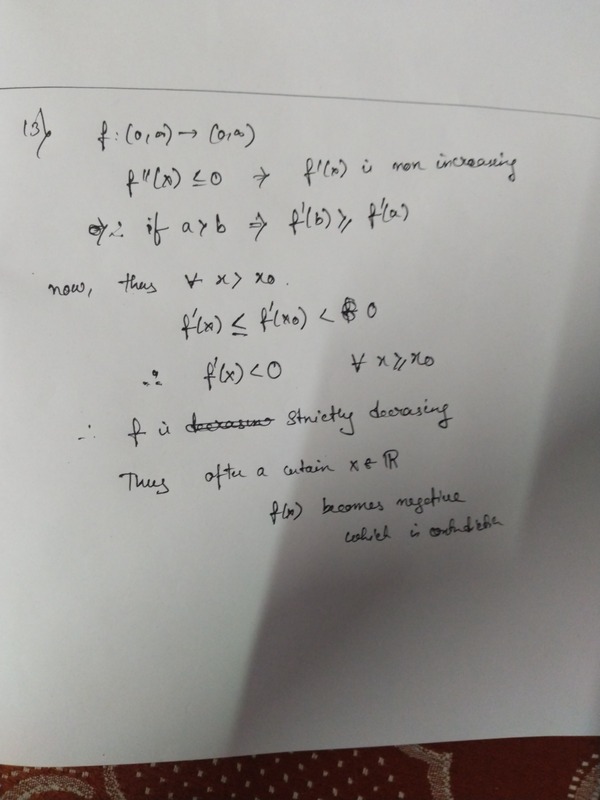 13) f : (0, ∞) → (0, ∞)
f''(x) ≤ 0 → f'(x) is non increasing
∴ if a > b ⇒ f'(b) ≥ f'(a)
now, thus ∀ x > x₀.
f'(x) ≤ f'(x₀) < 0
∴ f'(x) < 0 ∀ x ≥ x₀
∴ f is strictly decrasing
Thus after a certain x ∈ ℝ
f(x) becomes negative
which is